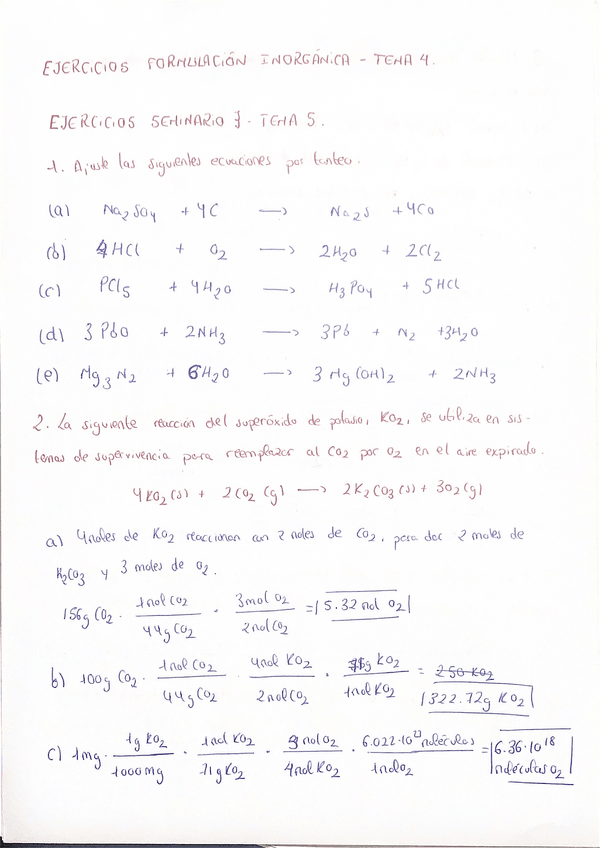 EJERCICIOS FORMULACIÓN INORGÁNICA - TEMA 4.
EJERCICIOS SEMINARIO 3 - TEMA 5.
1. Ajuste las siguientes ecuaciones por tanteo.
(a) Na2SO4 + 4C → Na2S + 4CO
(b) 4HCl + O2 → 2H2O + 2Cl2
(c) PCl5 + 4H2O → H3PO4 + 5HCl
(d) 3PbO + 2NH3 → 3Pb + N2 + 3H2O
(e) Mg3N2 + 6H2O → 3Mg(OH)2 + 2NH3
2. La siguiente reacción del superóxido de potasio, KO2, se utiliza en sis-
temas de supervivencia para reemplazar al CO2 por O2 en el aire expirado.
4KO2(s) + 2CO2(g) → 2K2CO3(s) + 3O2(g)
a) 4 moles de KO2 reaccionan con 2 moles de CO2, para dar 2 moles de
K2CO3 y 3 moles de O2.
156g CO2 · 1mol CO2/44g CO2 · 3mol O2/2mol CO2 = 5.32 mol O2
b) 100g CO2 · 1mol CO2/44g CO2 · 4mol KO2/2mol CO2 · 71g KO2/1mol KO2 = 250 KO2
322.72g KO2
c) 1mg · 1g KO2/1000mg · 1mol KO2/71g KO2 · 3molO2/4molKO2 · 6.022·10^23 moléculas/1molO2 = 6.36·10^18 moléculas O2